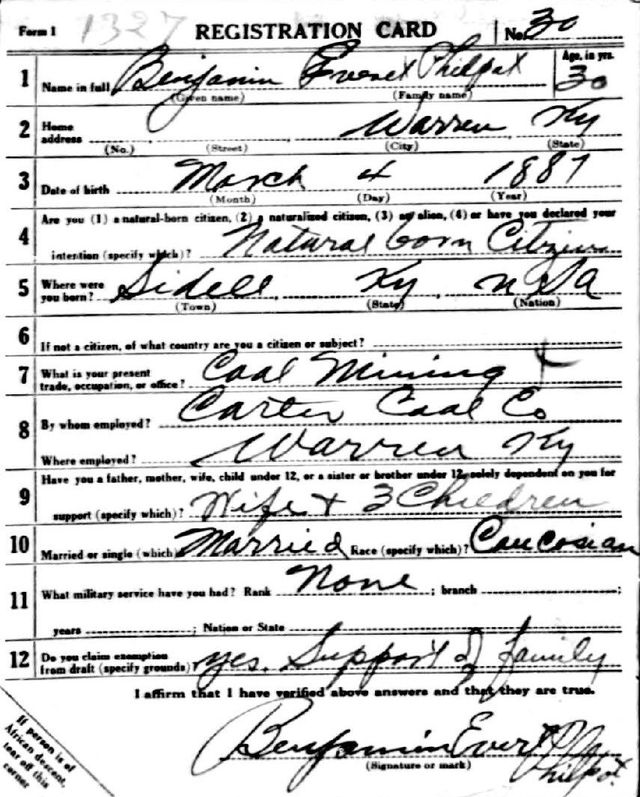 Form 1 1327 REGISTRATION CARD No. 30
1 Name in full Benjamin Everet Philpot Age, in yrs. 30
(Given name) (Family name)
2 Home address Warren, Ky
(No.) (Street) (City) (State)
3 Date of birth March 4 1887
(Month) (Day) (Year)
4 Are you (1) a natural-born citizen, (2) a naturalized citizen, (3) an alien, (4) or have you declared your
intention (specify which)? Natural born Citizen
5 Where were you born? Sidell, Ky, USA
(Town) (State) (Nation)
6 If not a citizen, of what country are you a citizen or subject?
7 What is your present trade, occupation, or office? Coal Mining
8 By whom employed? Carter Coal Co
Where employed? Warren Ky
9 Have you a father, mother, wife, child under 12, or a sister or brother under 12, solely dependent on you for
support (specify which)? Wife + 3 Children
10 Married or single (which) Married Race (specify which)? Caucosian
11 What military service have you had? Rank None; branch ;
years ; Nation or State
12 Do you claim exemption from draft (specify grounds)? yes. Support of family
I affirm that I have verified above answers and that they are true.
Benjamin Evert Philpot
(Signature or mark)
If person is of
African descent,
tear off this
corner